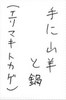 手に山羊
と鍋
(エリマキトカゲ)